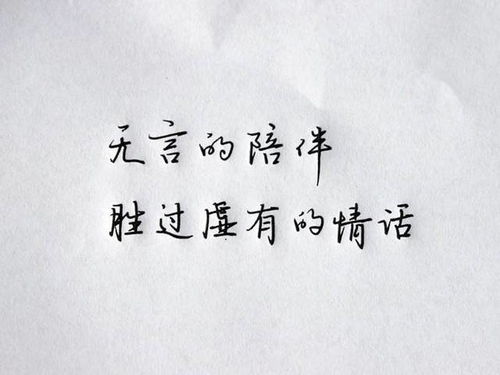 无言的陪伴
胜过虚有的情话